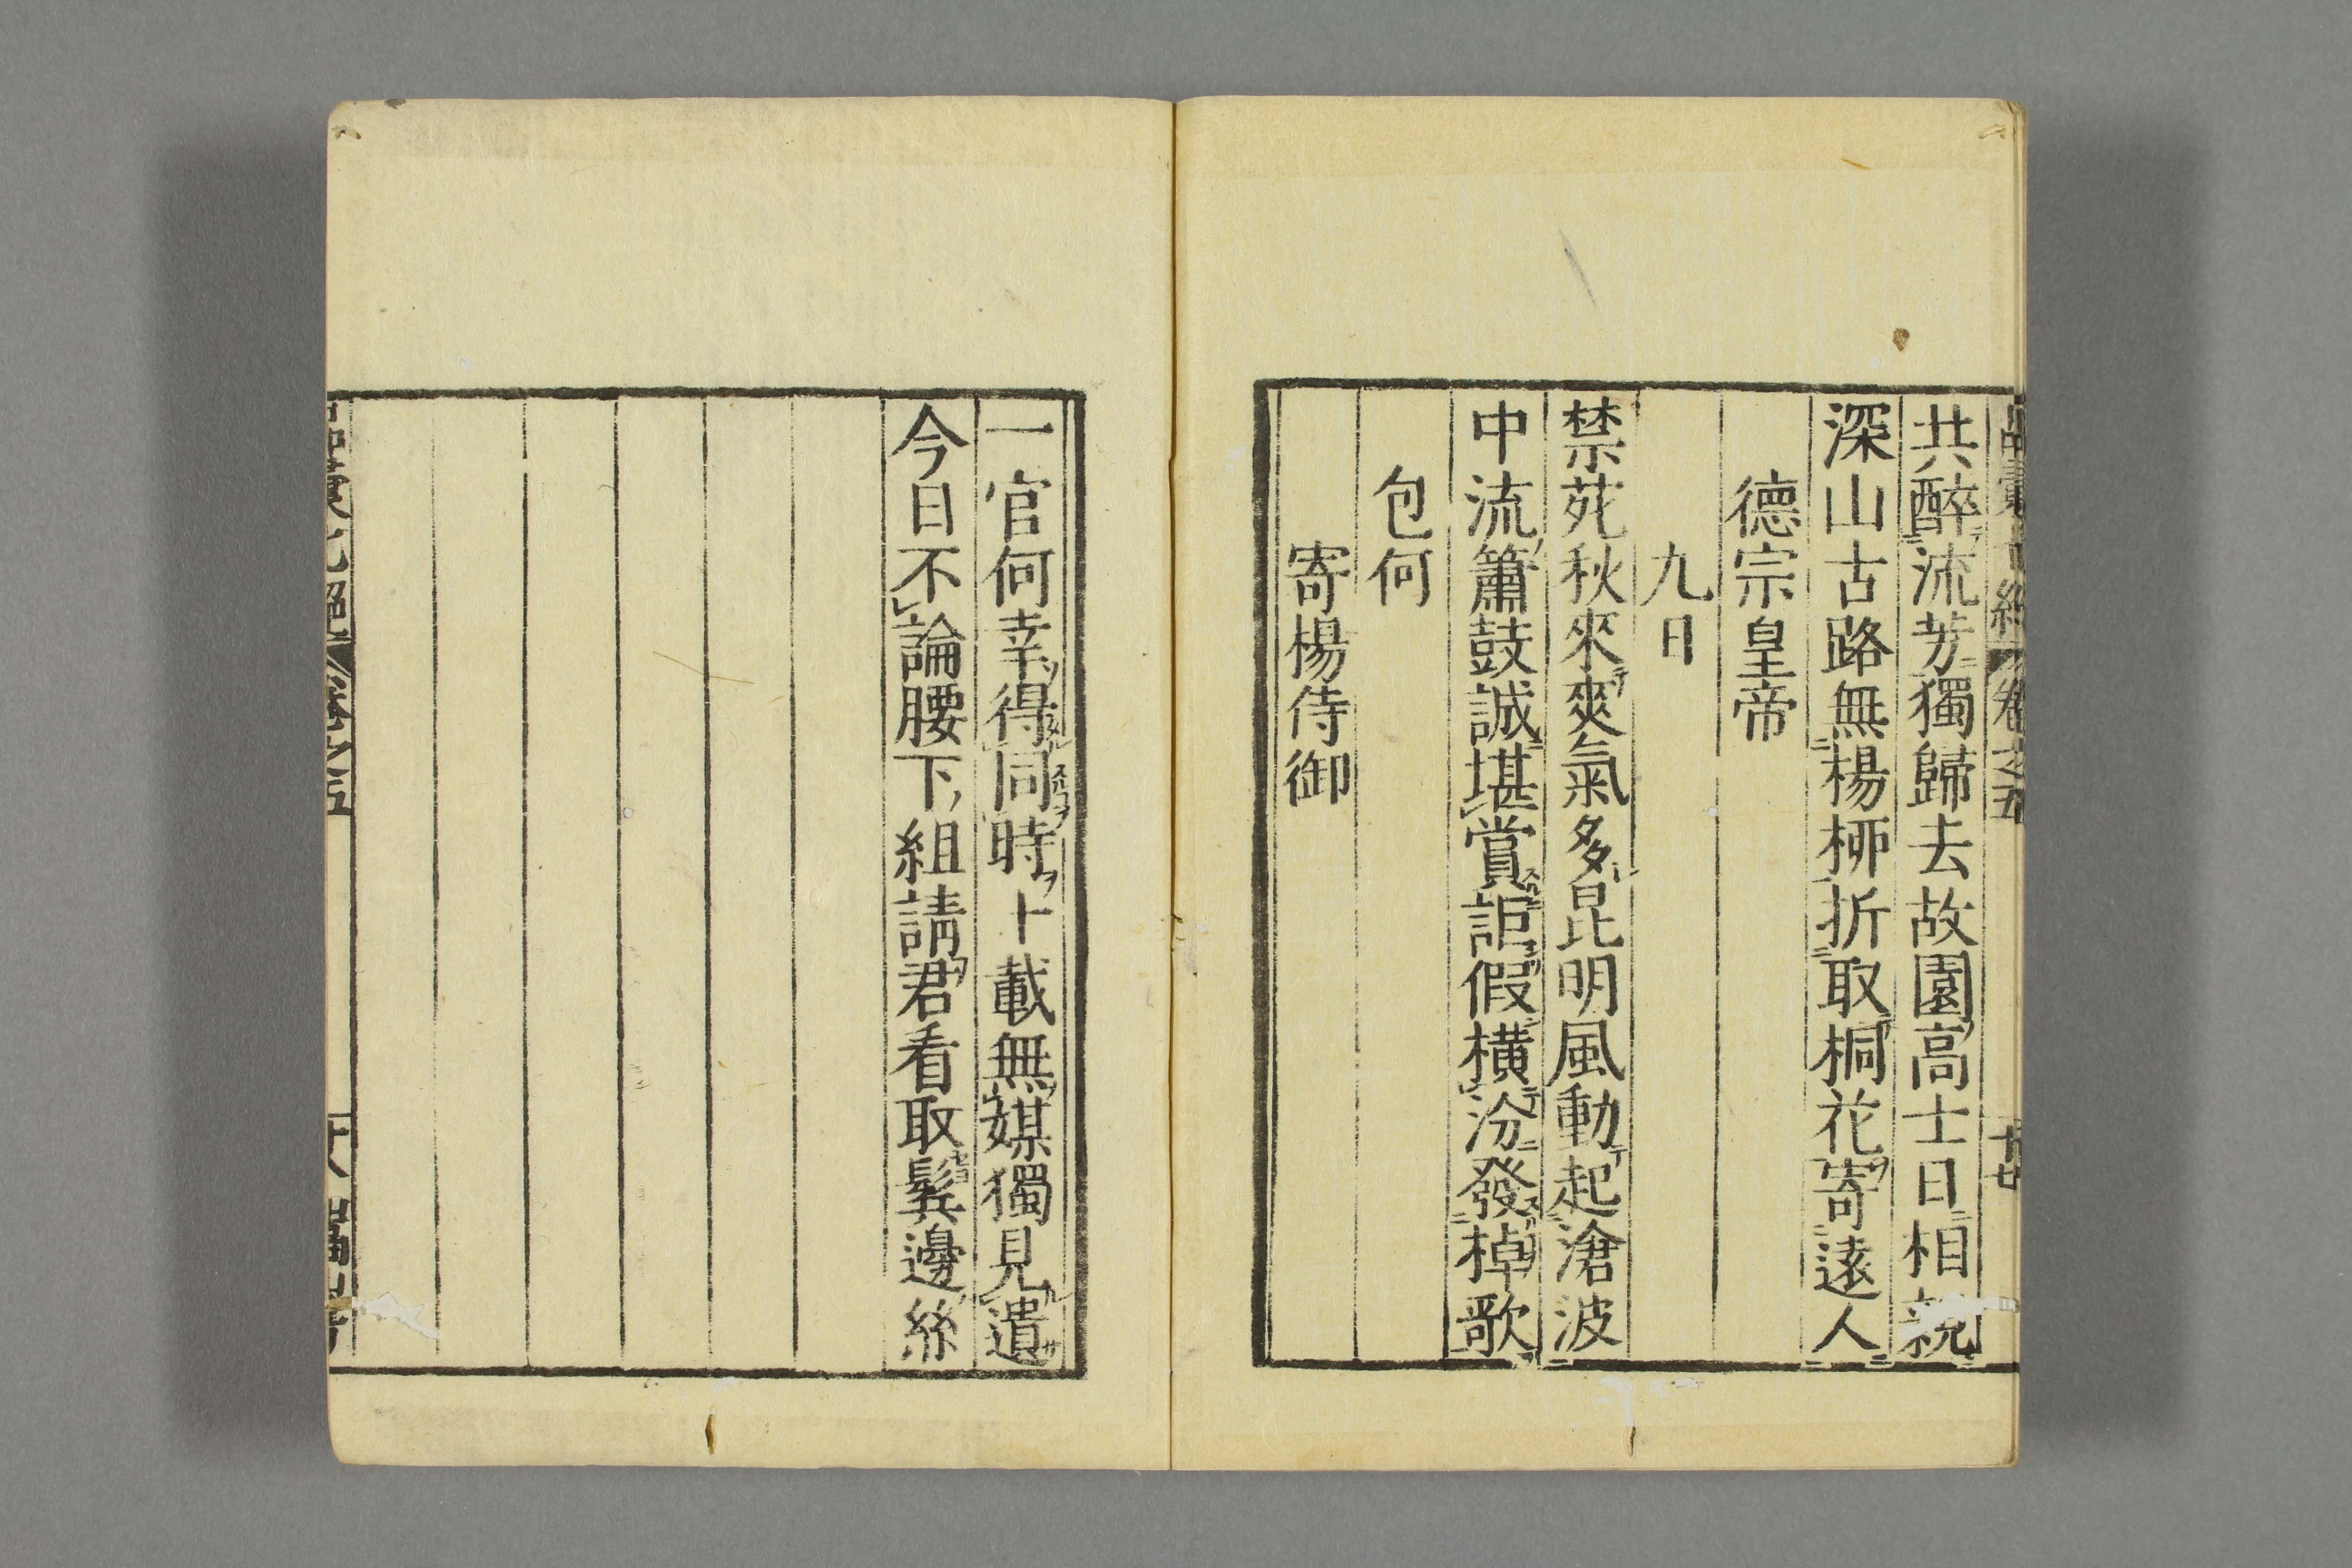 品彙七絶 卷之五 廿七
共醉流芳獨歸去故園高士日相親
深山古路無楊柳折取桐花寄遠人
德宗皇帝
九日
禁苑秋來爽氣多昆明風動起滄波
中流簫鼓誠堪賞詎假橫汾發棹歌
包何
寄楊侍御
一官何幸得同時十載無媒獨見遺
今日不論腰下組請君看取鬂邊絲
品彙七絶 卷之五